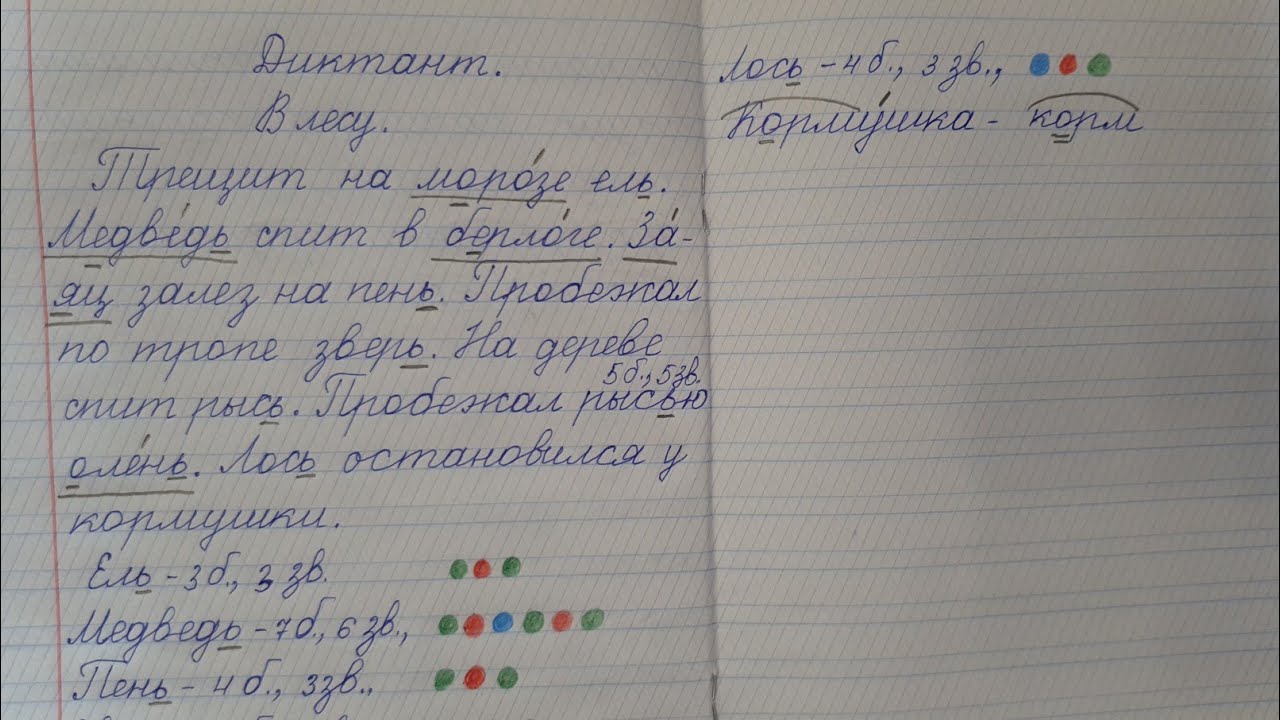 Диктант.
В лесу.
Трещит на моро́зе ель.
Медве́дь спит в берло́ге. За́-
яц залез на пень. Пробежал
по тропе зверь. На дереве
5 б., 5 зв.
спит рысь. Пробежал рысью
оле́нь. Лось остановился у
кормушки.
Ель - 3 б., 3 зв.
Медведь - 7 б., 6 зв.,
Пень - 4 б., 3 зв.,
Лось - 4 б., 3 зв.,
Корму́шка - корм